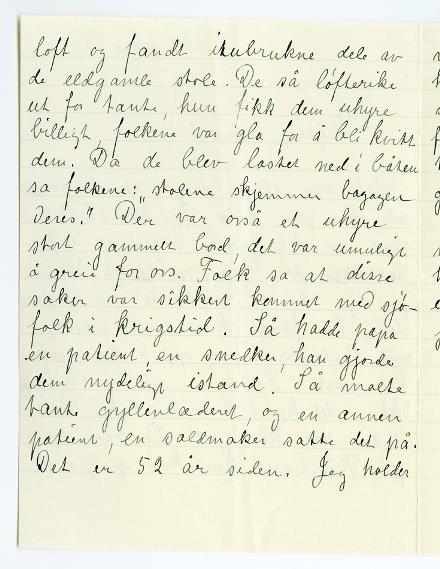 loft og fandt itubrukne dele av
de eldgamle stole. De så løfterike
ut for tante, hun fikk dem uhyre
billigt, folkene var gla for å bli kvitt
dem. Da de blev lastet ned i båten
sa folkene: "stolene skjemmer bagagen
Deres." Der var også et uhyre
stort gammelt bord, det var umuligt
å greie for oss. Folk sa at disse
saker var sikkert kommet med sjø-
folk i krigstid. Så hadde papa
en patient, en snedker, han gjorde
dem nydeligt istand. Så malte
tante gyllenlæderet, og en annen
patient, en saldmaker satte det på.
Det er 52 år siden. Jeg holder